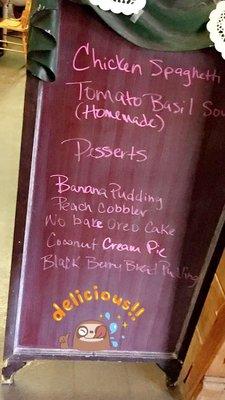 Chicken Spaghetti
Tomato Basil Sou
(Homemade)
Desserts
Banana Pudding
Peach Cobbler
No bake Oreo Cake
Coconut Cream Pie
Black Berry Bread Pudding
delicious!!